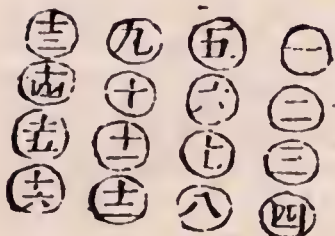 一二三四
五六七八
九十十一十二
十三十四十五十六